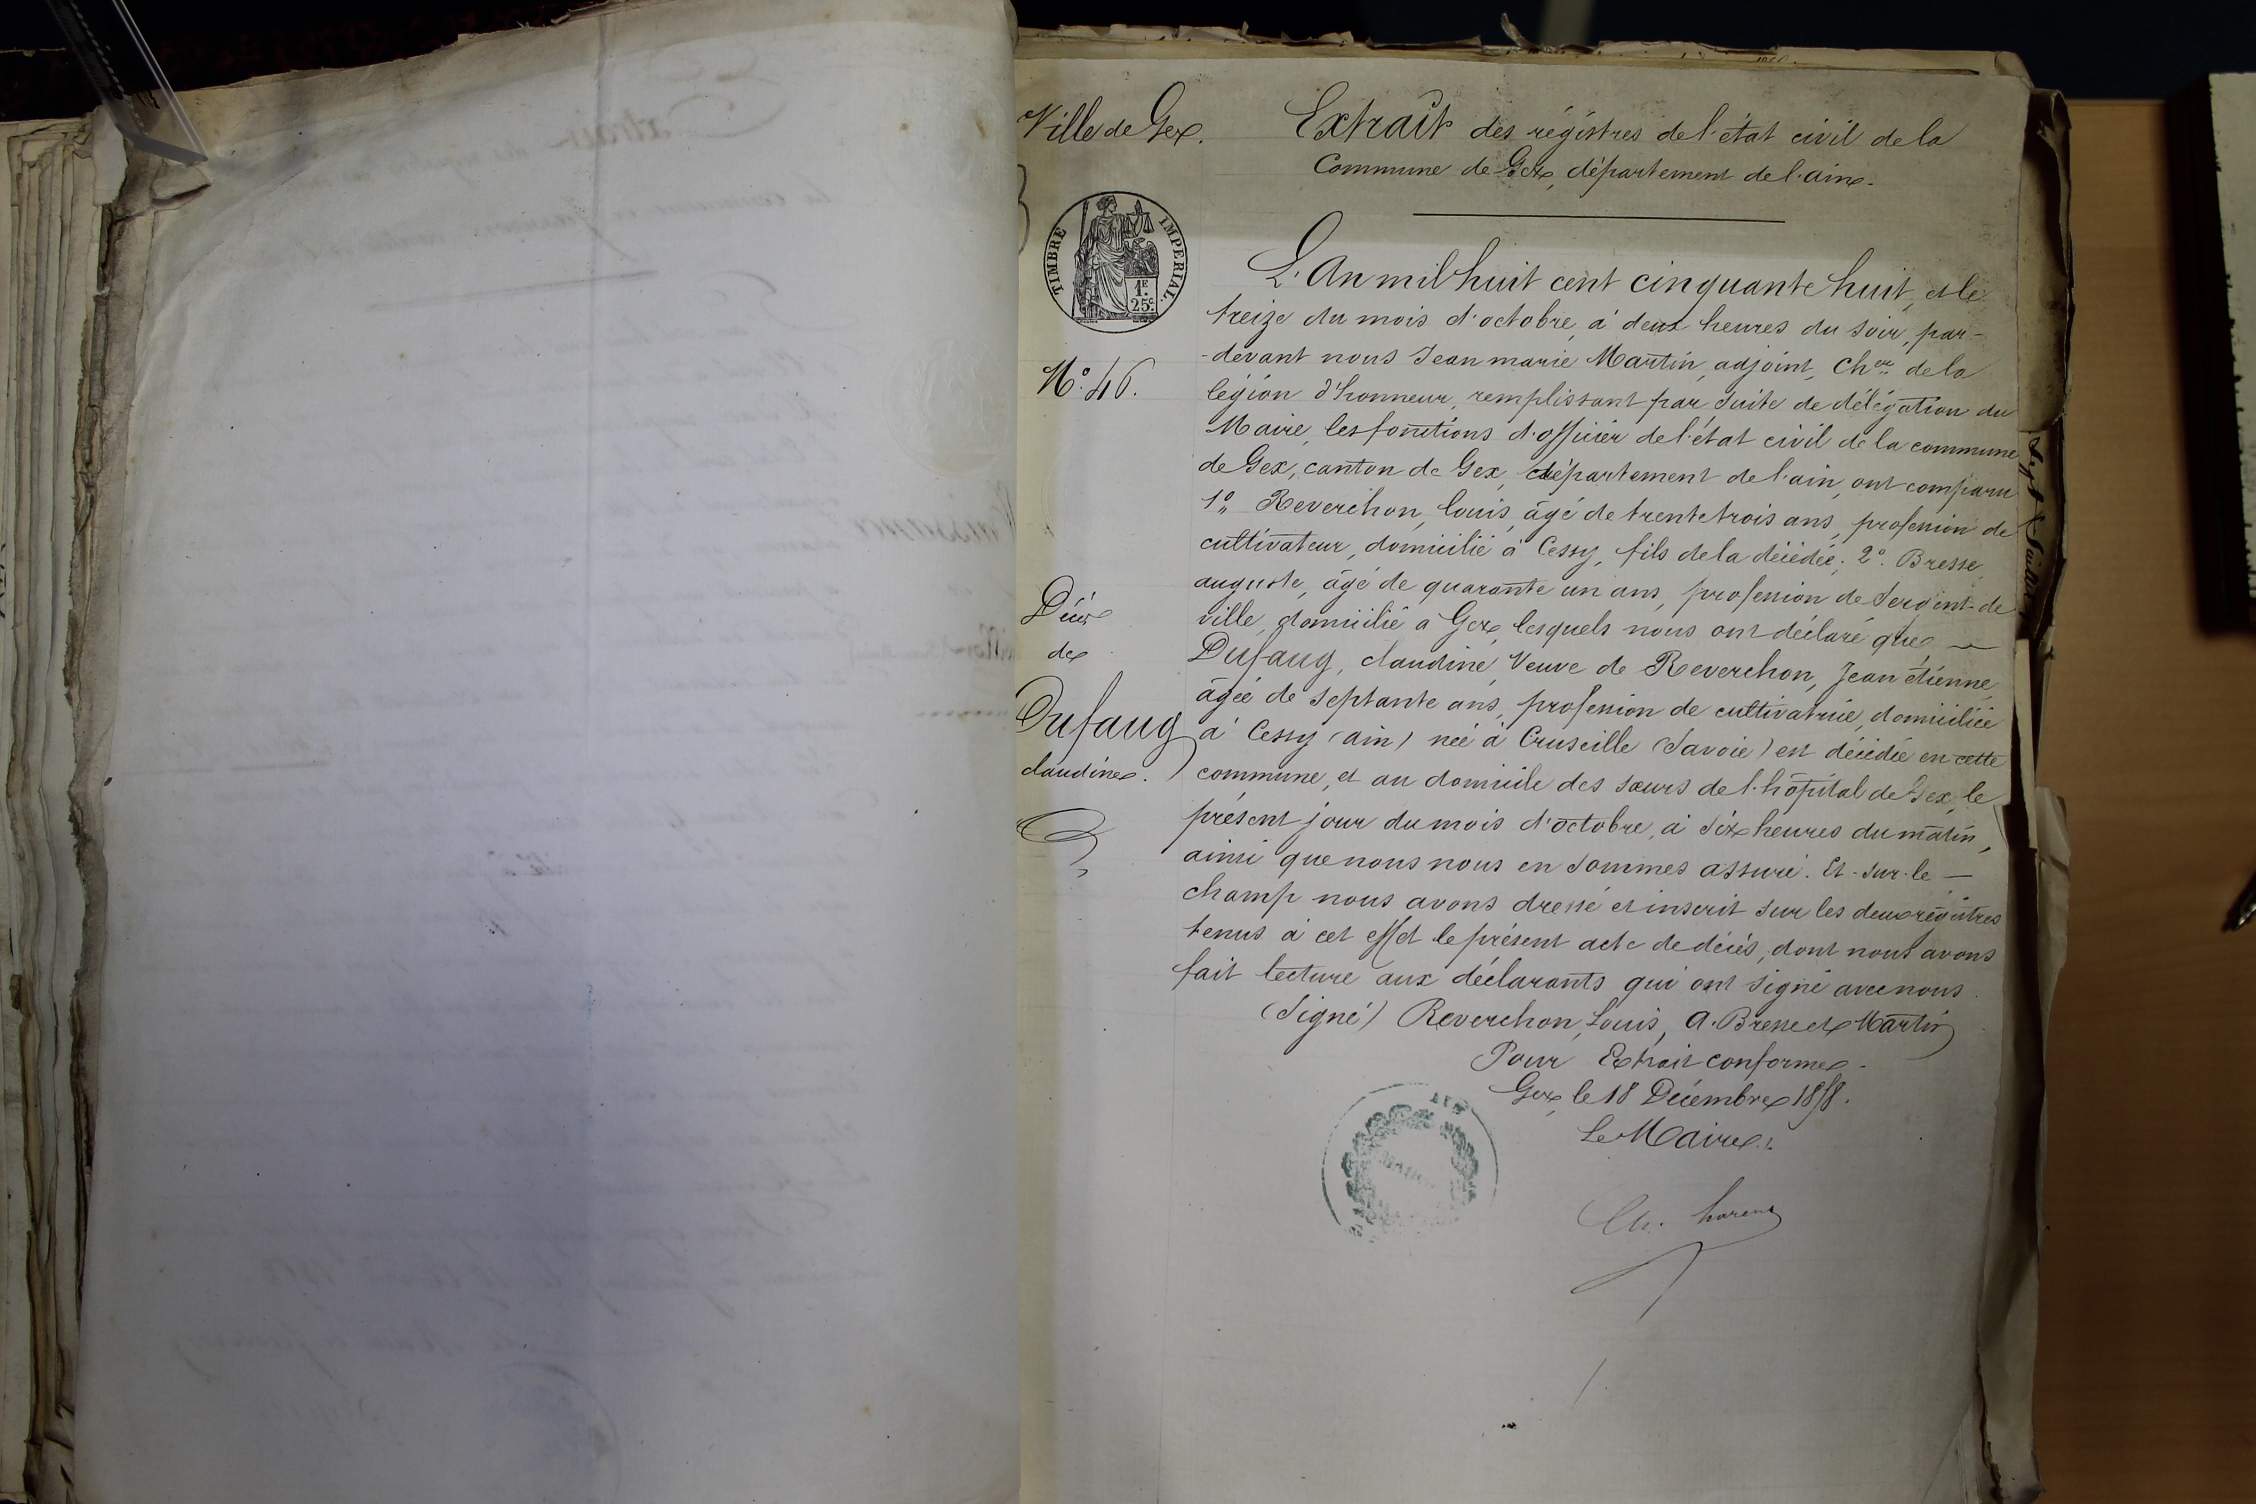 Ville de Gex.
Extrait des régistres de l'état civil de la
Commune de Gex, département de l'ain.
TIMBRE IMPERIAL.
1F.
25c.
L'An mil huit cent cinquante huit, et le
treize du mois d'octobre, à deux heures du soir, par-
-devant nous Jean marie Martin, adjoint, Cher de la
légion d'honneur, remplissant par suite de délégation du
N.° 46.
Maire, les fonctions d'officier de l'état civil de la commune
de Gex, canton de Gex, département de l'ain, ont comparu
1° Reverchon, louis, âgé de trente trois ans, profession de
cultivateur, domicilié à Cessy, fils de la décédée; 2° Bresse,
auguste, âgé de quarante un ans, profession de Sergent-de
ville, domicilié à Gex, lesquels nous ont déclaré que —
Décès
de
Dufaug
claudine.
Dufaug, claudine, Veuve de Reverchon, Jean étienne,
âgée de septante ans, profession de cultivatrice, domiciliée
à Cessy (ain) née à Cruseille (Savoie) est décédée en cette
commune, et au domicile des sœurs de l'hôpital de Gex, le
présent jour du mois d'octobre, à six heures du matin,
ainsi que nous nous en sommes assuré. Et-sur-le —
champ nous avons dressé et inscrit sur les deux régistres
tenus à cet effet le présent acte de décès, dont nous avons
fait lecture aux déclarants qui ont signé avec nous.
(Signé) Reverchon, Louis, A. Bresse et Martin
Pour Extrait conforme.
Gex, le 18 Décembre 1858.
Le Maire.
AIN